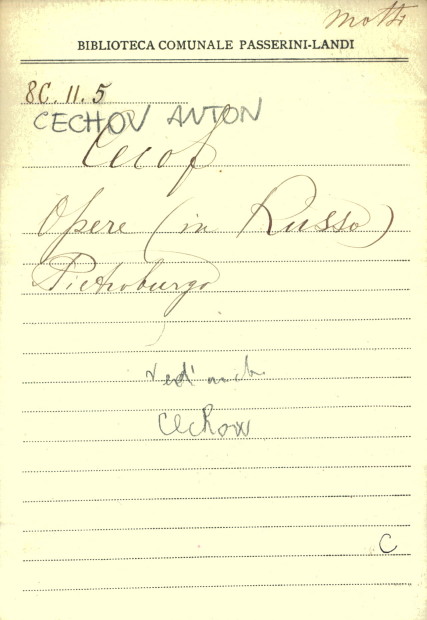 Motti
BIBLIOTECA COMUNALE PASSERINI-LANDI
8C. II. 5
CECHOV ANTON
Cecof
Opere (in Russo)
Pietroburgo
Vedi anche
Cechow
C